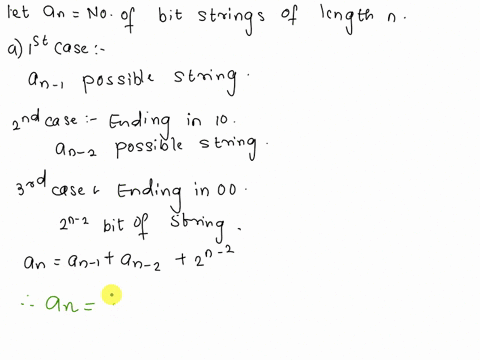 let an = No. of bit strings of length n.
a) 1st case :-
an-1 possible string.
2nd case :- Ending in 10.
an-2 possible string.
3rd case Ending in 00.
2^n-2 bit of string.
an = an-1 + an-2 + 2^n-2
∴ an =